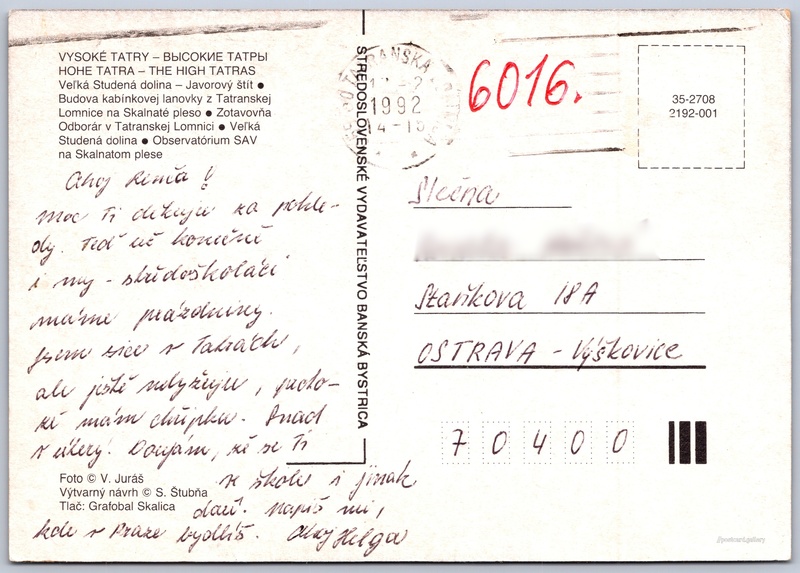 VYSOKÉ TATRY – ВЫСОКИЕ ТАТРЫ
HOHE TATRA – THE HIGH TATRAS
Veľká Studená dolina – Javorový štít ●
Budova kabínkovej lanovky z Tatranskej
Lomnice na Skalnaté pleso ● Zotavovňa
Odborár v Tatranskej Lomnici ● Veľká
Studená dolina ● Observatórium SAV
na Skalnatom plese
Ahoj Renča!
moc Ti děkuju za pohle-
dy. Teď už konečně
i my - středoškoláci
máme prázdniny.
Jsem sice v Tatrách,
ale ještě nelyžuju, proto-
že mám chřipku. Snad
v úterý! Doufám, že se Ti
ve škole i jinak
daří. Napiš mi,
kde v Praze bydlíš. Ahoj Helga
Foto © V. Juráš
Výtvarný návrh © S. Štubňa
Tlač: Grafobal Skalica
STREDOSLOVENSKÉ VYDAVATEĽSTVO BANSKÁ BYSTRICA
TATRANSKÁ
1992
6016.
35-2708
2192-001
Slečna
Staňkova 18A
OSTRAVA - Výškovice
70400
postcard.gallery